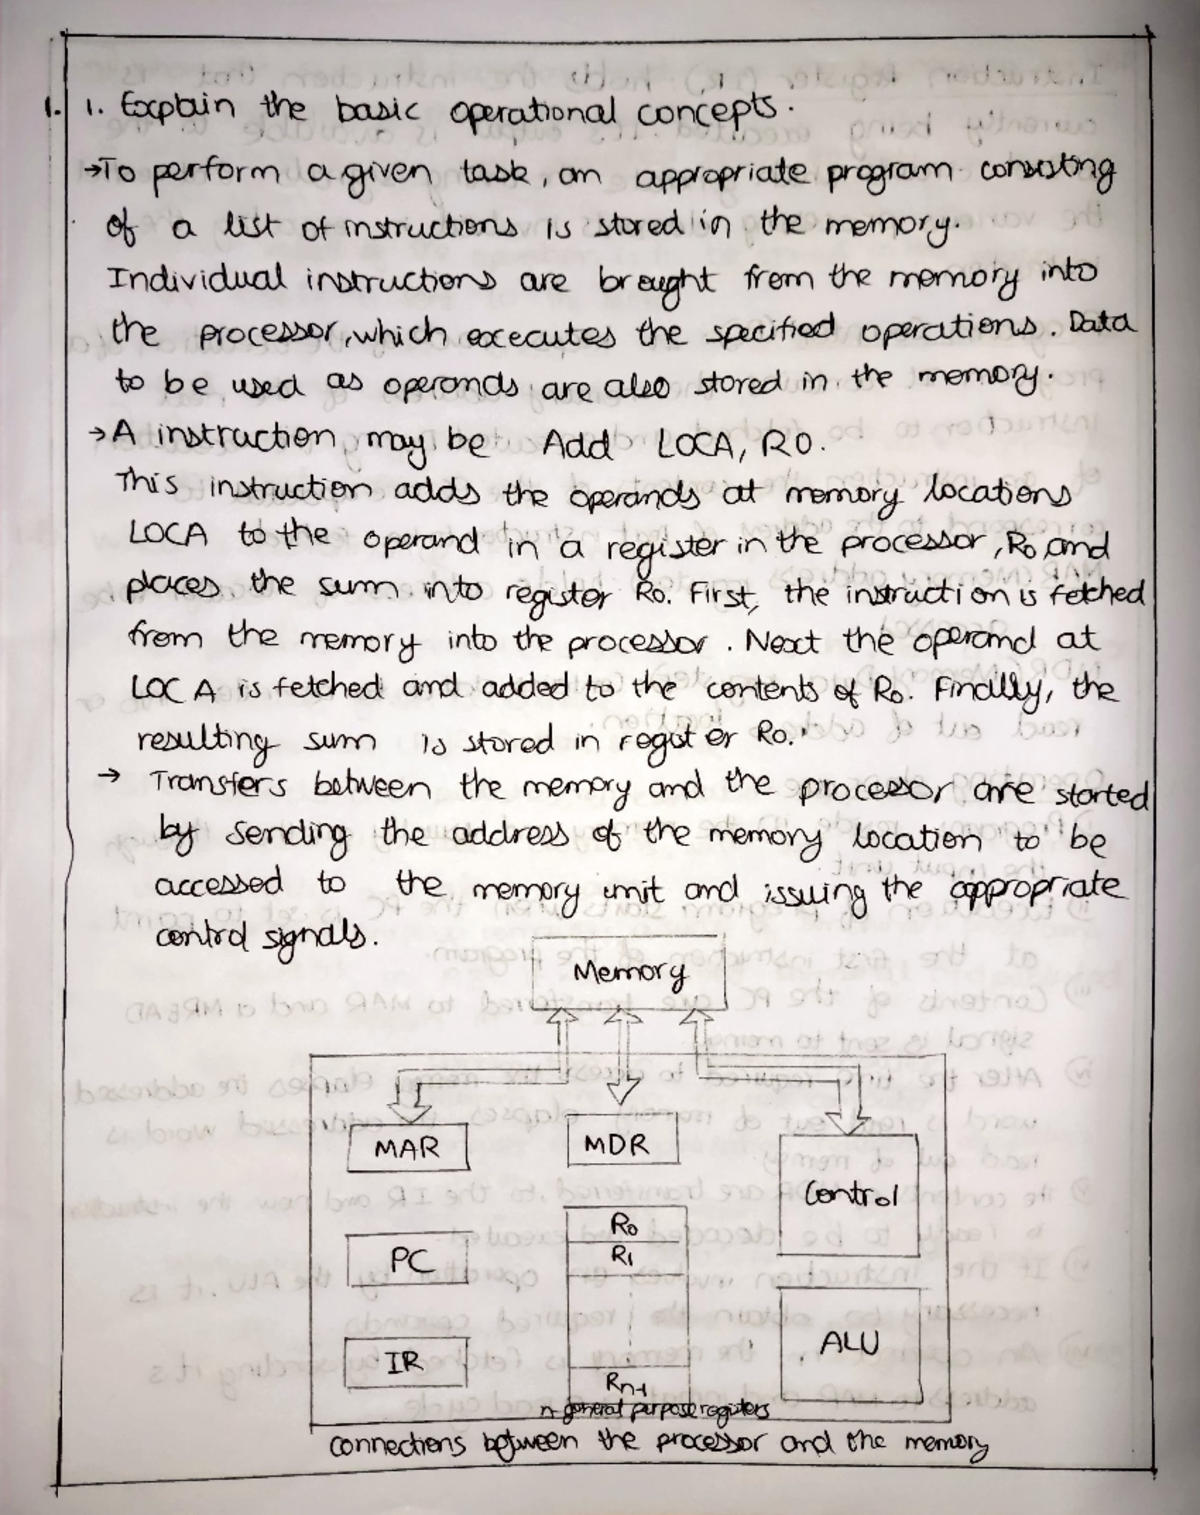 1. 1. Explain the basic operational concepts.
→To perform a given task, an appropriate program consisting
of a list of instructions is stored in the memory.
Individual instructions are brought from the memory into
the processor, which executes the specified operations. Data
to be used as operands are also stored in the memory.
→A instruction may be Add LOCA, R0.
This instruction adds the operands at memory locations
LOCA to the operand in a register in the processor, R0 and
places the sum into register R0. First, the instruction is fetched
from the memory into the processor. Next the operand at
LOC A is fetched and added to the contents of R0. Finally, the
resulting sum is stored in register R0.
→ Transfers between the memory and the processor are started
by sending the address of the memory location to be
accessed to the memory unit and issuing the appropriate
control signals.
Memory
MAR
MDR
Control
R0
PC
R1
ALU
IR
Rn-1
n-general purpose registers
connections between the processor and the memory